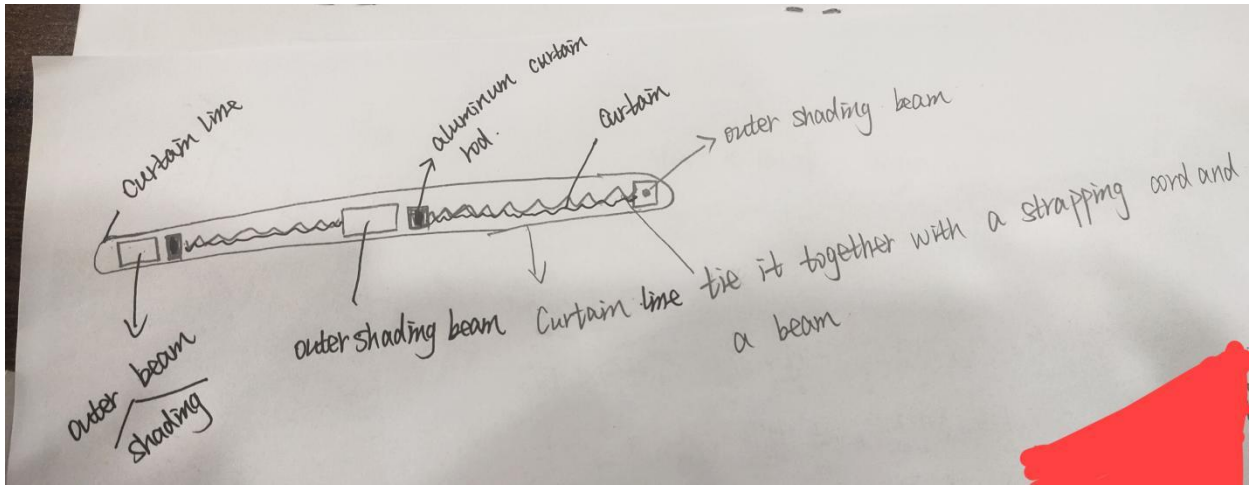 curtain line
aluminum curtain
rod.
curtain
outer shading beam
outer beam
shading
outer shading beam
Curtain line
tie it together with a strapping cord and
a beam